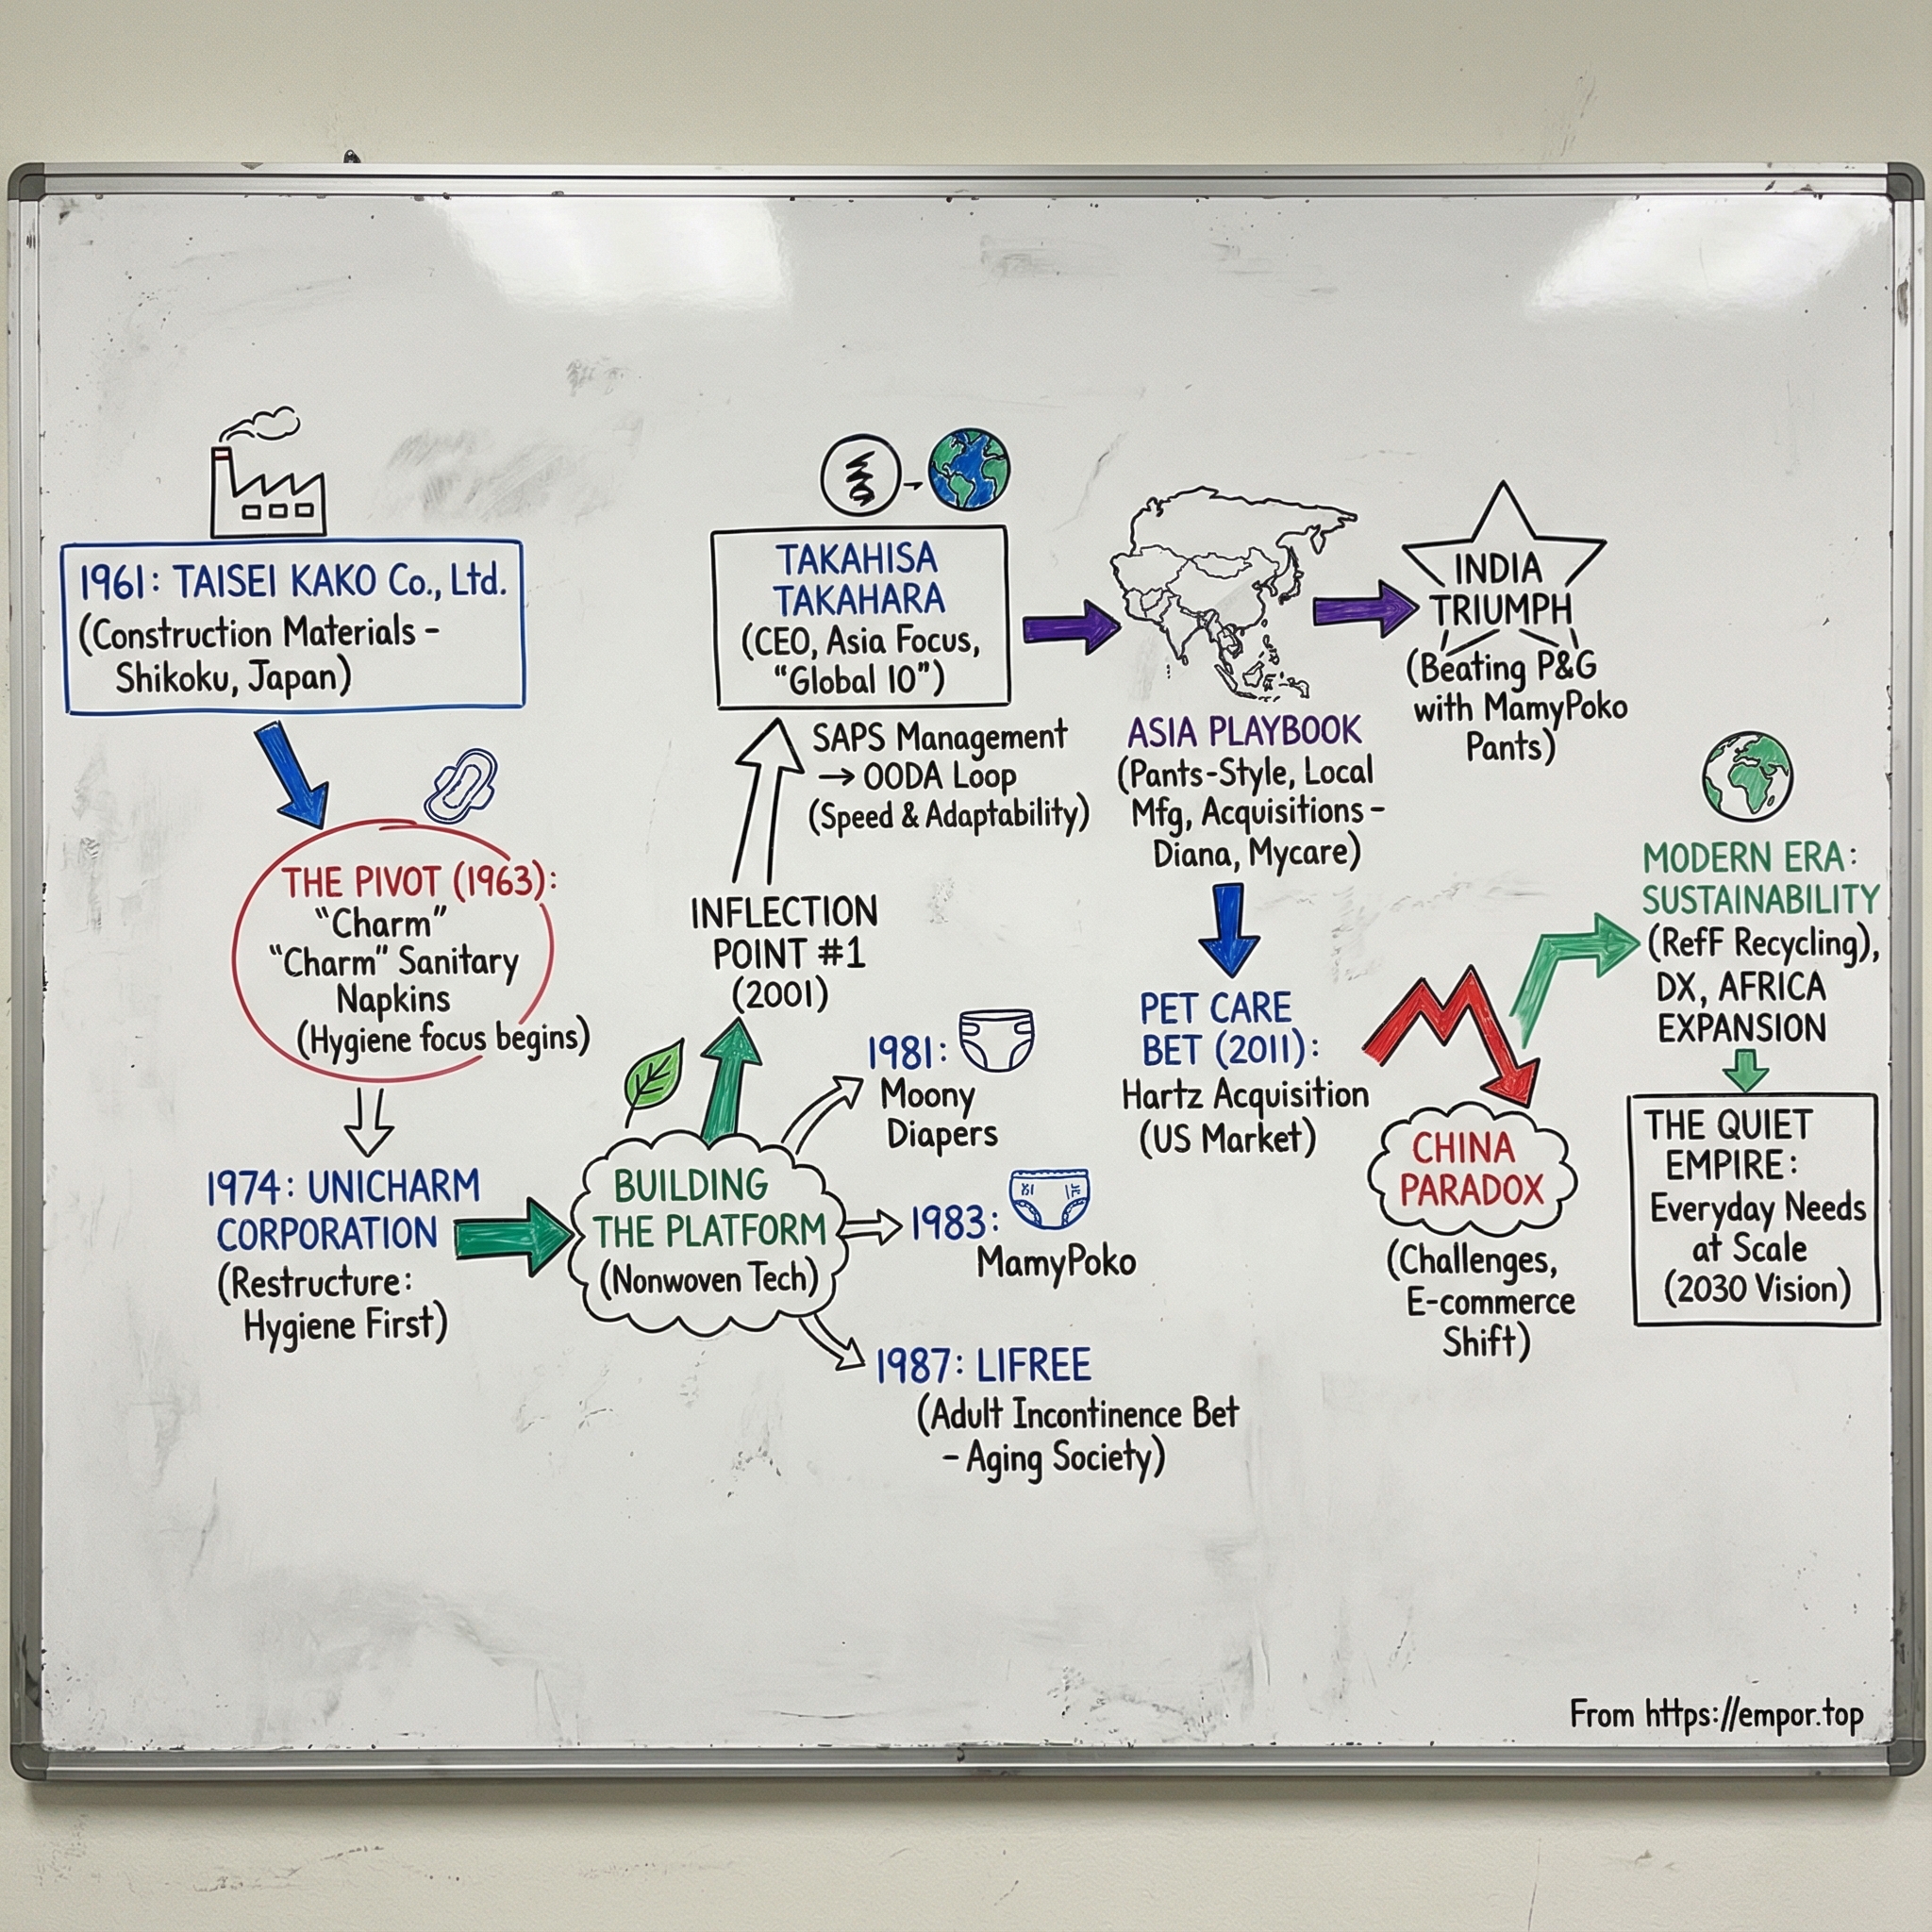 1961: TAISEI KAKO Co., Ltd.
(Construction Materials -
Shikoku, Japan)
THE PIVOT (1963):
"Charm"
"Charm" Sanitary
Napkins
(Hygiene focus begins)
1974: UNICHARM
CORPORATION
(Restructure:
Hygiene First)
BUILDING
THE PLATFORM
(Nonwoven Tech)
1981:
Moony
Diapers
1983:
MamyPoko
1987: LIFREE
(Adult Incontinence Bet
- Aging Society)
INFLECTION
POINT #1
(2001)
TAKAHISA
TAKAHARA
(CEO, Asia Focus,
"Global 10")
SAPS Management
→ OODA Loop
(Speed & Adaptability)
ASIA PLAYBOOK
(Pants-Style, Local
Mfg, Acquisitions -
Diana, Mycare)
INDIA
TRIUMPH
(Beating P&G
with MamyPoko
Pants)
PET CARE
BET (2011):
Hartz Acquisition
(US Market)
CHINA
PARADOX
(Challenges,
E-commerce
Shift)
MODERN ERA:
SUSTAINABILITY
(RefF Recycling),
DX, AFRICA
EXPANSION
THE QUIET
EMPIRE:
Everyday Needs
at Scale
(2030 Vision)
From https://empor.top